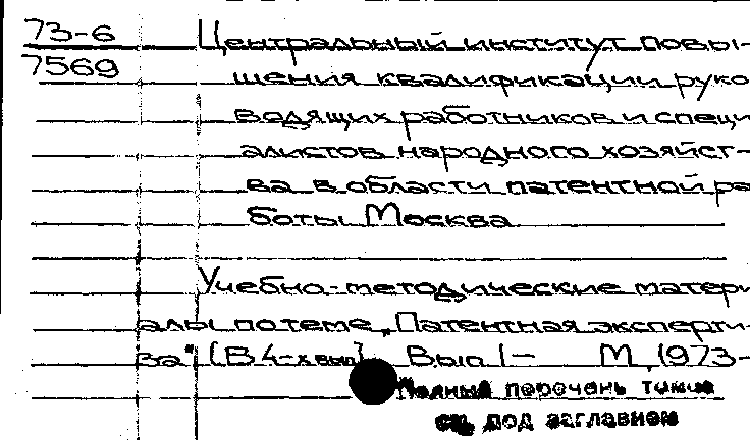 73-6
7569
Центральный институт повы-
шения квалификации руко
водящих работников и специ
алистов народного хозяйст-
ва в области патентной ра
боты Москва
Учебно-методические матери
алы по теме „Патентная эксперти-
за" [В 4-х вып] Вып 1- М, 1973-
Полный перечень томов
см. под заглавием